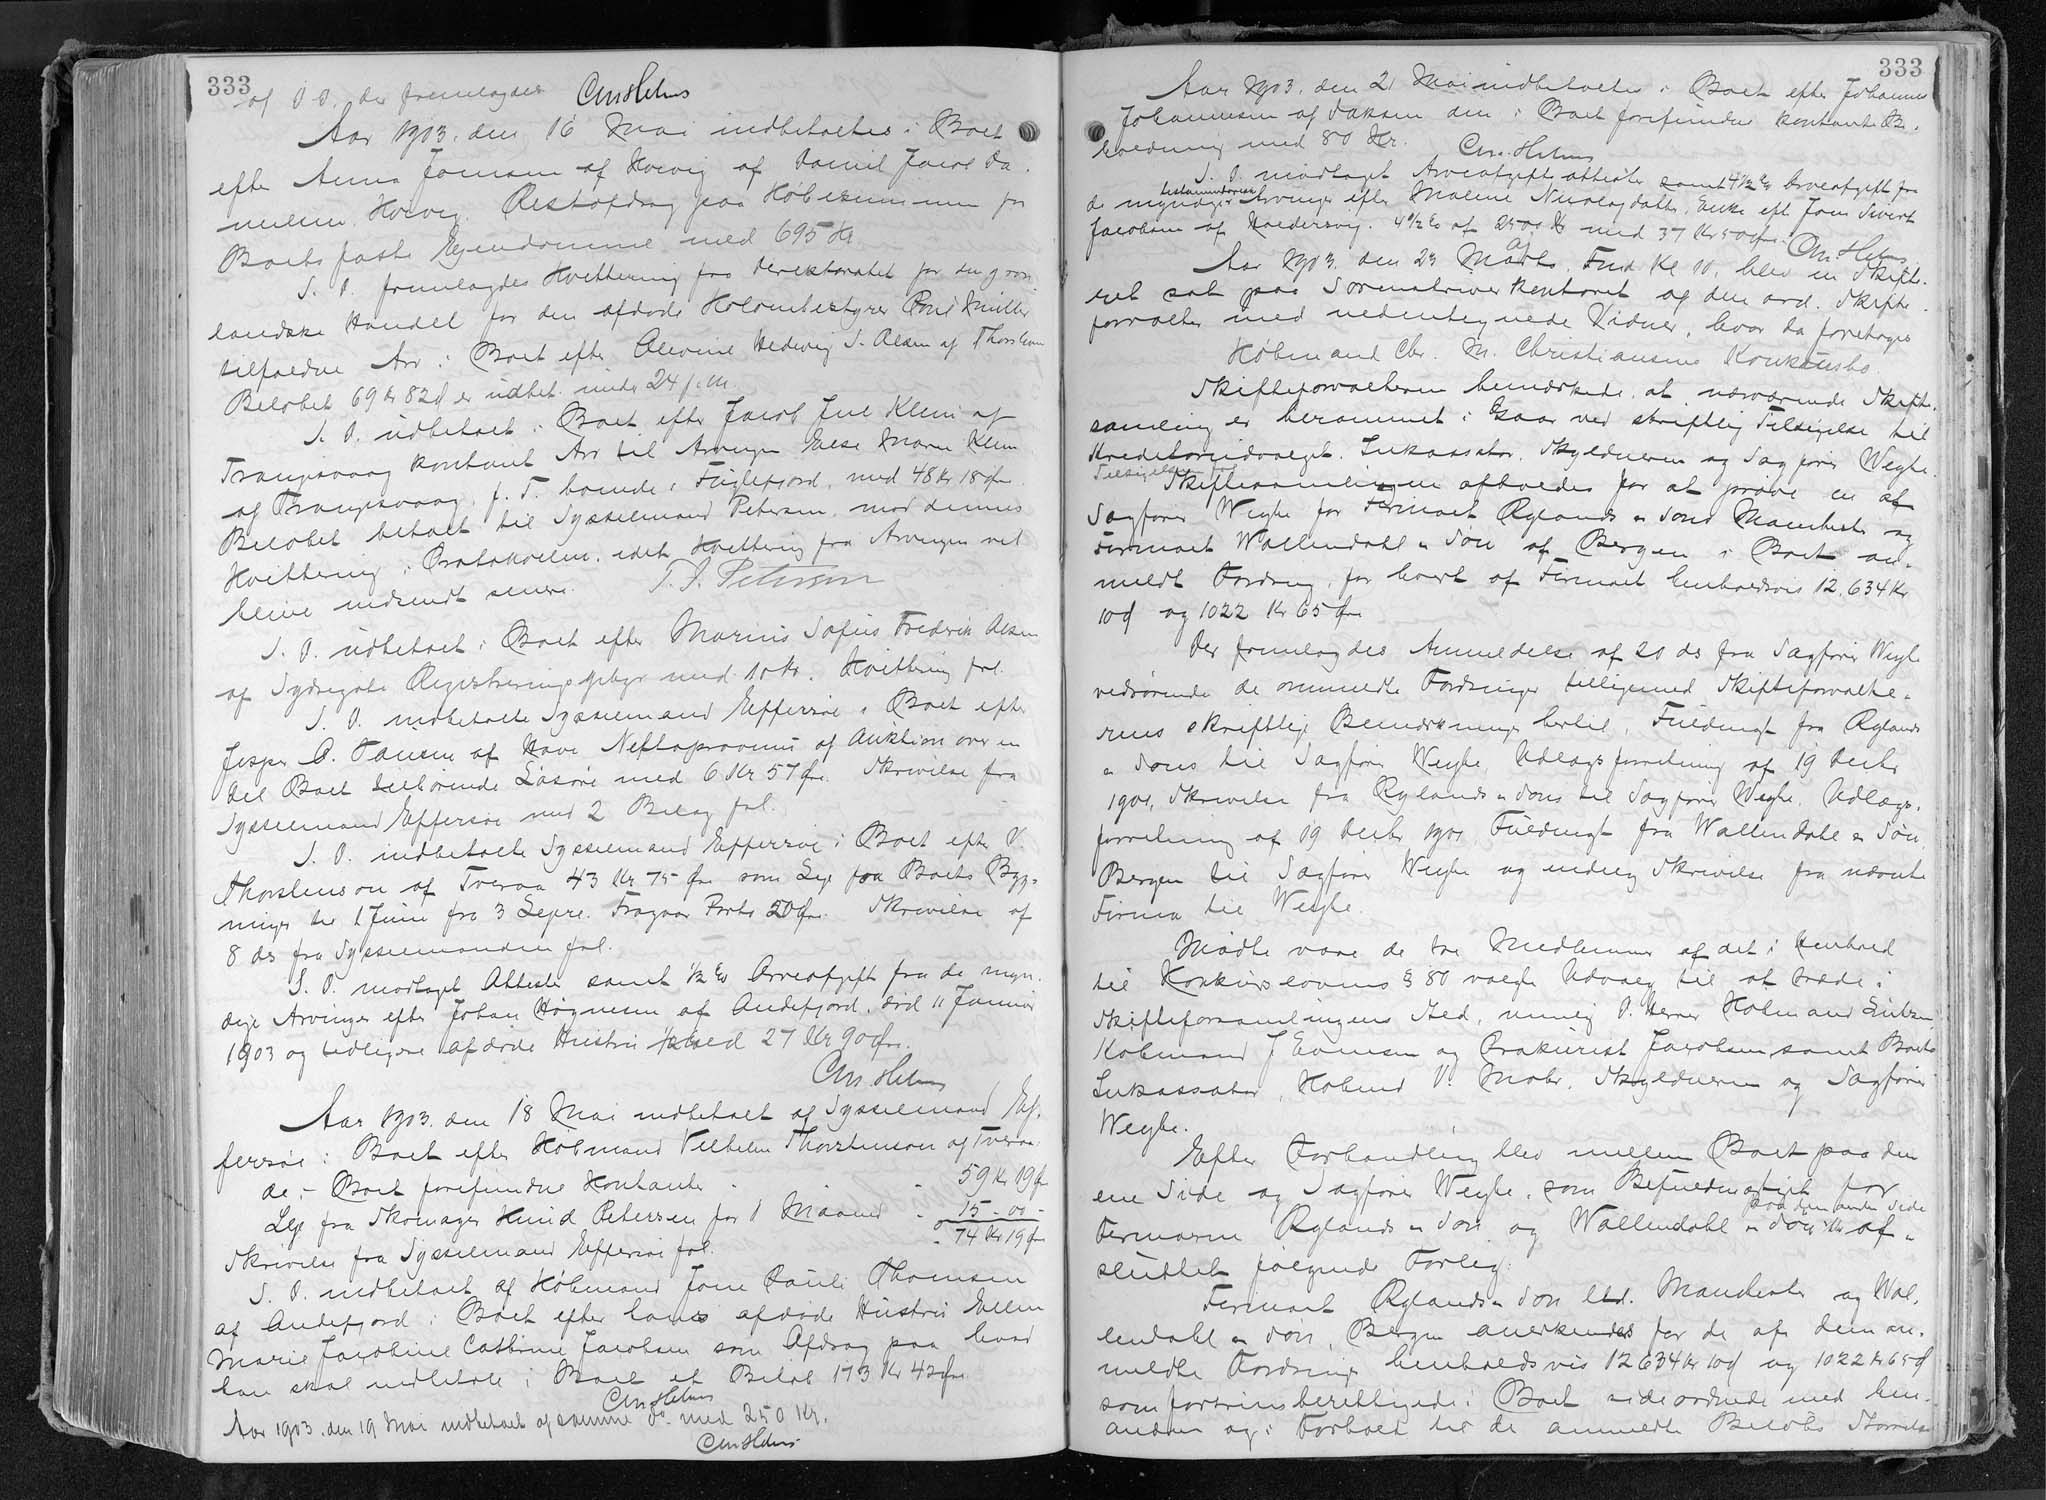 333
af D.D. der fremlagdes CMHelms
Aar 1903. den 16 Mai indbetaltes i Boet
efter Anna Joensen af Hovig af Daniel Jacob Da-
nielsen Hovig. Restafdrag paa Købesummen for
Boets faste Ejendomme med 695 Kr.
S. D. fremlagdes Kvittering fra Direktoratet for den grøn-
landske Handel for den afdøde Kolonibestyrer Poul Müller
tilfaldne Arv i Boet efter Hedevig S. Olsen af Thorshavn
Beløbet 69 Kr 82 Ø er udbet. under 24 f. M.
S. D. udbetalt i Boet efter Jacob Juul Klein af
Trangisvaag kontant Arv til Arvingen Else Maren Klein
af Trangisvaag, p. T. boende i Fuglefjord, med 48 Kr 18 Øre
Beløbet betalt til Sysselmand Petersen, mod dennes
Kvittering i Protokollen, idet Kvittering fra Arvingen vil
blive indsendt senere. Petersen
S. D. udbetalt i Boet efter Marius Sofus Fredrik Olsen
af Sydregote Registreringsgebyr med 10 Kr. Kvittering fol.
S. D. indbetalte Sysselmand Effersøe i Boet efter
Jesper P. Poulsen af Nettoprovenu af Auktion over en
Del Boet tilhørende Løsøre med 6 Kr 57 Øre. Skrivelse fra
Sysselmand Effersøe med 2 Bilag fol.
S. D. indbetalte Sysselmand Effersøe i Boet efter V.
Thorstensson af Tveraa 43 Kr 75 Øre som Leje paa Boets Byg-
ninger til 1 Juni fra 3 Lejere. Fragaar Porto 20 Øre. Skrivelse af
8 ds fra Sysselmanden fol.
S. D. modtaget Attester samt ½ % Arveafgift fra de myn-
dige Arvinger efter Johan Høgnesen af Andefjord, død 11 Januar
1903 og tidligere afdøde Hustru med 27 Kr 90 Øre.
CM. Helms
Aar 1903. den 18 Mai indbetalt af Sysselmand Ef-
fersøe i Boet efter Købmand Vilhelm Thorstensson af Tveraa
de i Boet forefundne Kontanter - - 59 Kr 19 Ø
Leje fra Skomager Petersen for 1 Maaned - 15 - 00 -
- 74 Kr 19 Ø
Skrivelse fra Sysselmand Effersøe fol.
S. D. indbetalt af Købmand Joen Pauli Thomsen
af Andefjord i Boet efter hans afdøde Hustru Ellen
Marie Jacobine Cathrine Jacobsen som Afdrag paa hvad
han skal indbetale i Boet et Beløb 173 Kr 42 Øre
CMHelms
Aar 1903. den 19 Mai indbetalt af samme do med 250 Kr.
CMHelms
333
Aar 1903. den 21 Mai indbetaltes i Boet efter Johannes
Johannesen af den i Boet forefundne kontante Be-
holdning med 80 Kr. CM. Helms
S. D. modtaget Arveafgiftsattester samt 4½ % Arveafgift fra
de myndige testamentariske Arvinger efter Malene Enke eft. Joen Sivert
Jacobsen af 4½ % af med 37 Kr 50 Øre. CM. Helms
Aar 1903. den 23 Mai Fmd. Kl 10. blev en Skifte-
ret sat paa Sorenskriverkontoret af den ord. Skifte-
forvalter med nedentegnede Vidner, hvor da foretoges
Købmand Chr. M. Christiansens Konkursbo.
Skifteforvalteren bemærkede at nærværende Skifte-
samling er berammet i Gaar ved skriftlig Tilsigelse til
Kreditorudvalget, Inkassator, Skyldneren og Sagfører Weyhe.
Tilsigelsen fol.
Skiftesamlingen afholdes for at prøve en af
Sagfører Weyhe for Firmaet Rylands & Sons Manchester og
Firmaet Wallendahl & Søn af Bergen i Boet an-
meldt Fordring, for hvert af Firmaet henholdsvis 12,634 Kr
10 Ø og 1022 Kr 65 Øre
Der fremlagdes Anmeldelse af 20 ds fra Sagfører Weyhe
vedrørende de anmeldte Fordringer tilligemed Skifteforvalte-
rens skriftlige Bemærkninger hertil, Fuldmagt fra Rylands
& Sons til Sagfører Weyhe, Udlægsforretning af 19 Decbr
1901, Skrivelse fra Rylands & Sons til Sagfører Weyhe. Udlægs-
forretning af 19 Decbr 1901, Fuldmagt fra Wallendahl & Søn
Bergen til Sagfører Weyhe og endelig Skrivelse fra nævnte
Firma til Weyhe.
Mødte vare de tre Medlemmer af det i Henhold
til Konkurslovens § 80 valgte Udvalg til at træde i
Skifteforsamlingens Sted, nemlig D'Herrer Købmand
Købmand J. og Prokurist Jacobsen samt Boets
Inkassator, Købmd V. Mohr, Skyldneren og Sagfører
Weyhe.
Efter Forhandling blev mellem Boet paa den
ene Side og Sagfører Weyhe, som Befuldmægtiget for
Firmaerne Rylands & Son og Wallendahl & Søn paa den anden Side af-
sluttet følgende Forlig:
Firmaet Rylands & Son Ltd. Manchester og Wal-
lendahl & Søn, Bergen anerkendes for de af dem an-
meldte Fordringer henholdsvis 12634 Kr 10 Ø og 1022 Kr 65 Ø
som fortrinsberettigede i Boet sideordnede med hin-
anden og i Forhold til de anmeldte Beløbs Størrelse